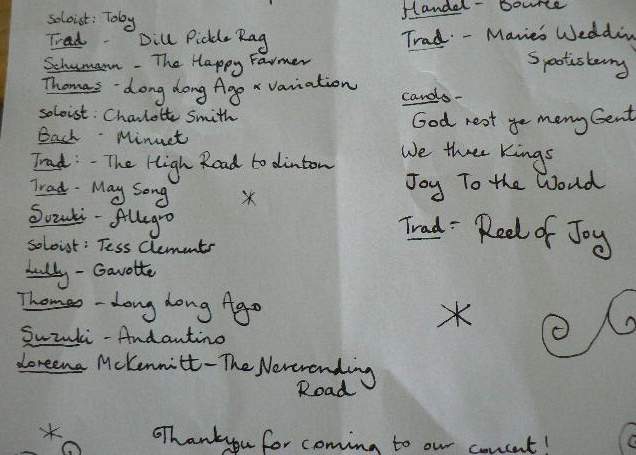 Soloist: Toby
Trad - Dill Pickle Rag
Schumann - The Happy Farmer
Thomas - Long Long Ago & Variation
Soloist: Charlotte Smith
Bach - Minuet
Trad: - The High Road to Linton
Trad - May Song
Suzuki - Allegro
Soloist: Tess Clements
Lully - Gavotte
Thomas - Long Long Ago
Suzuki - Andantino
Loreena McKennitt - The Neverending
Road
Handel - Bouree
Trad. - Marie's Weddin
carols -
God rest ye merry Gent
We three Kings
Joy To the World
Trad - Reel of Joy
Thankyou for coming to our concert!